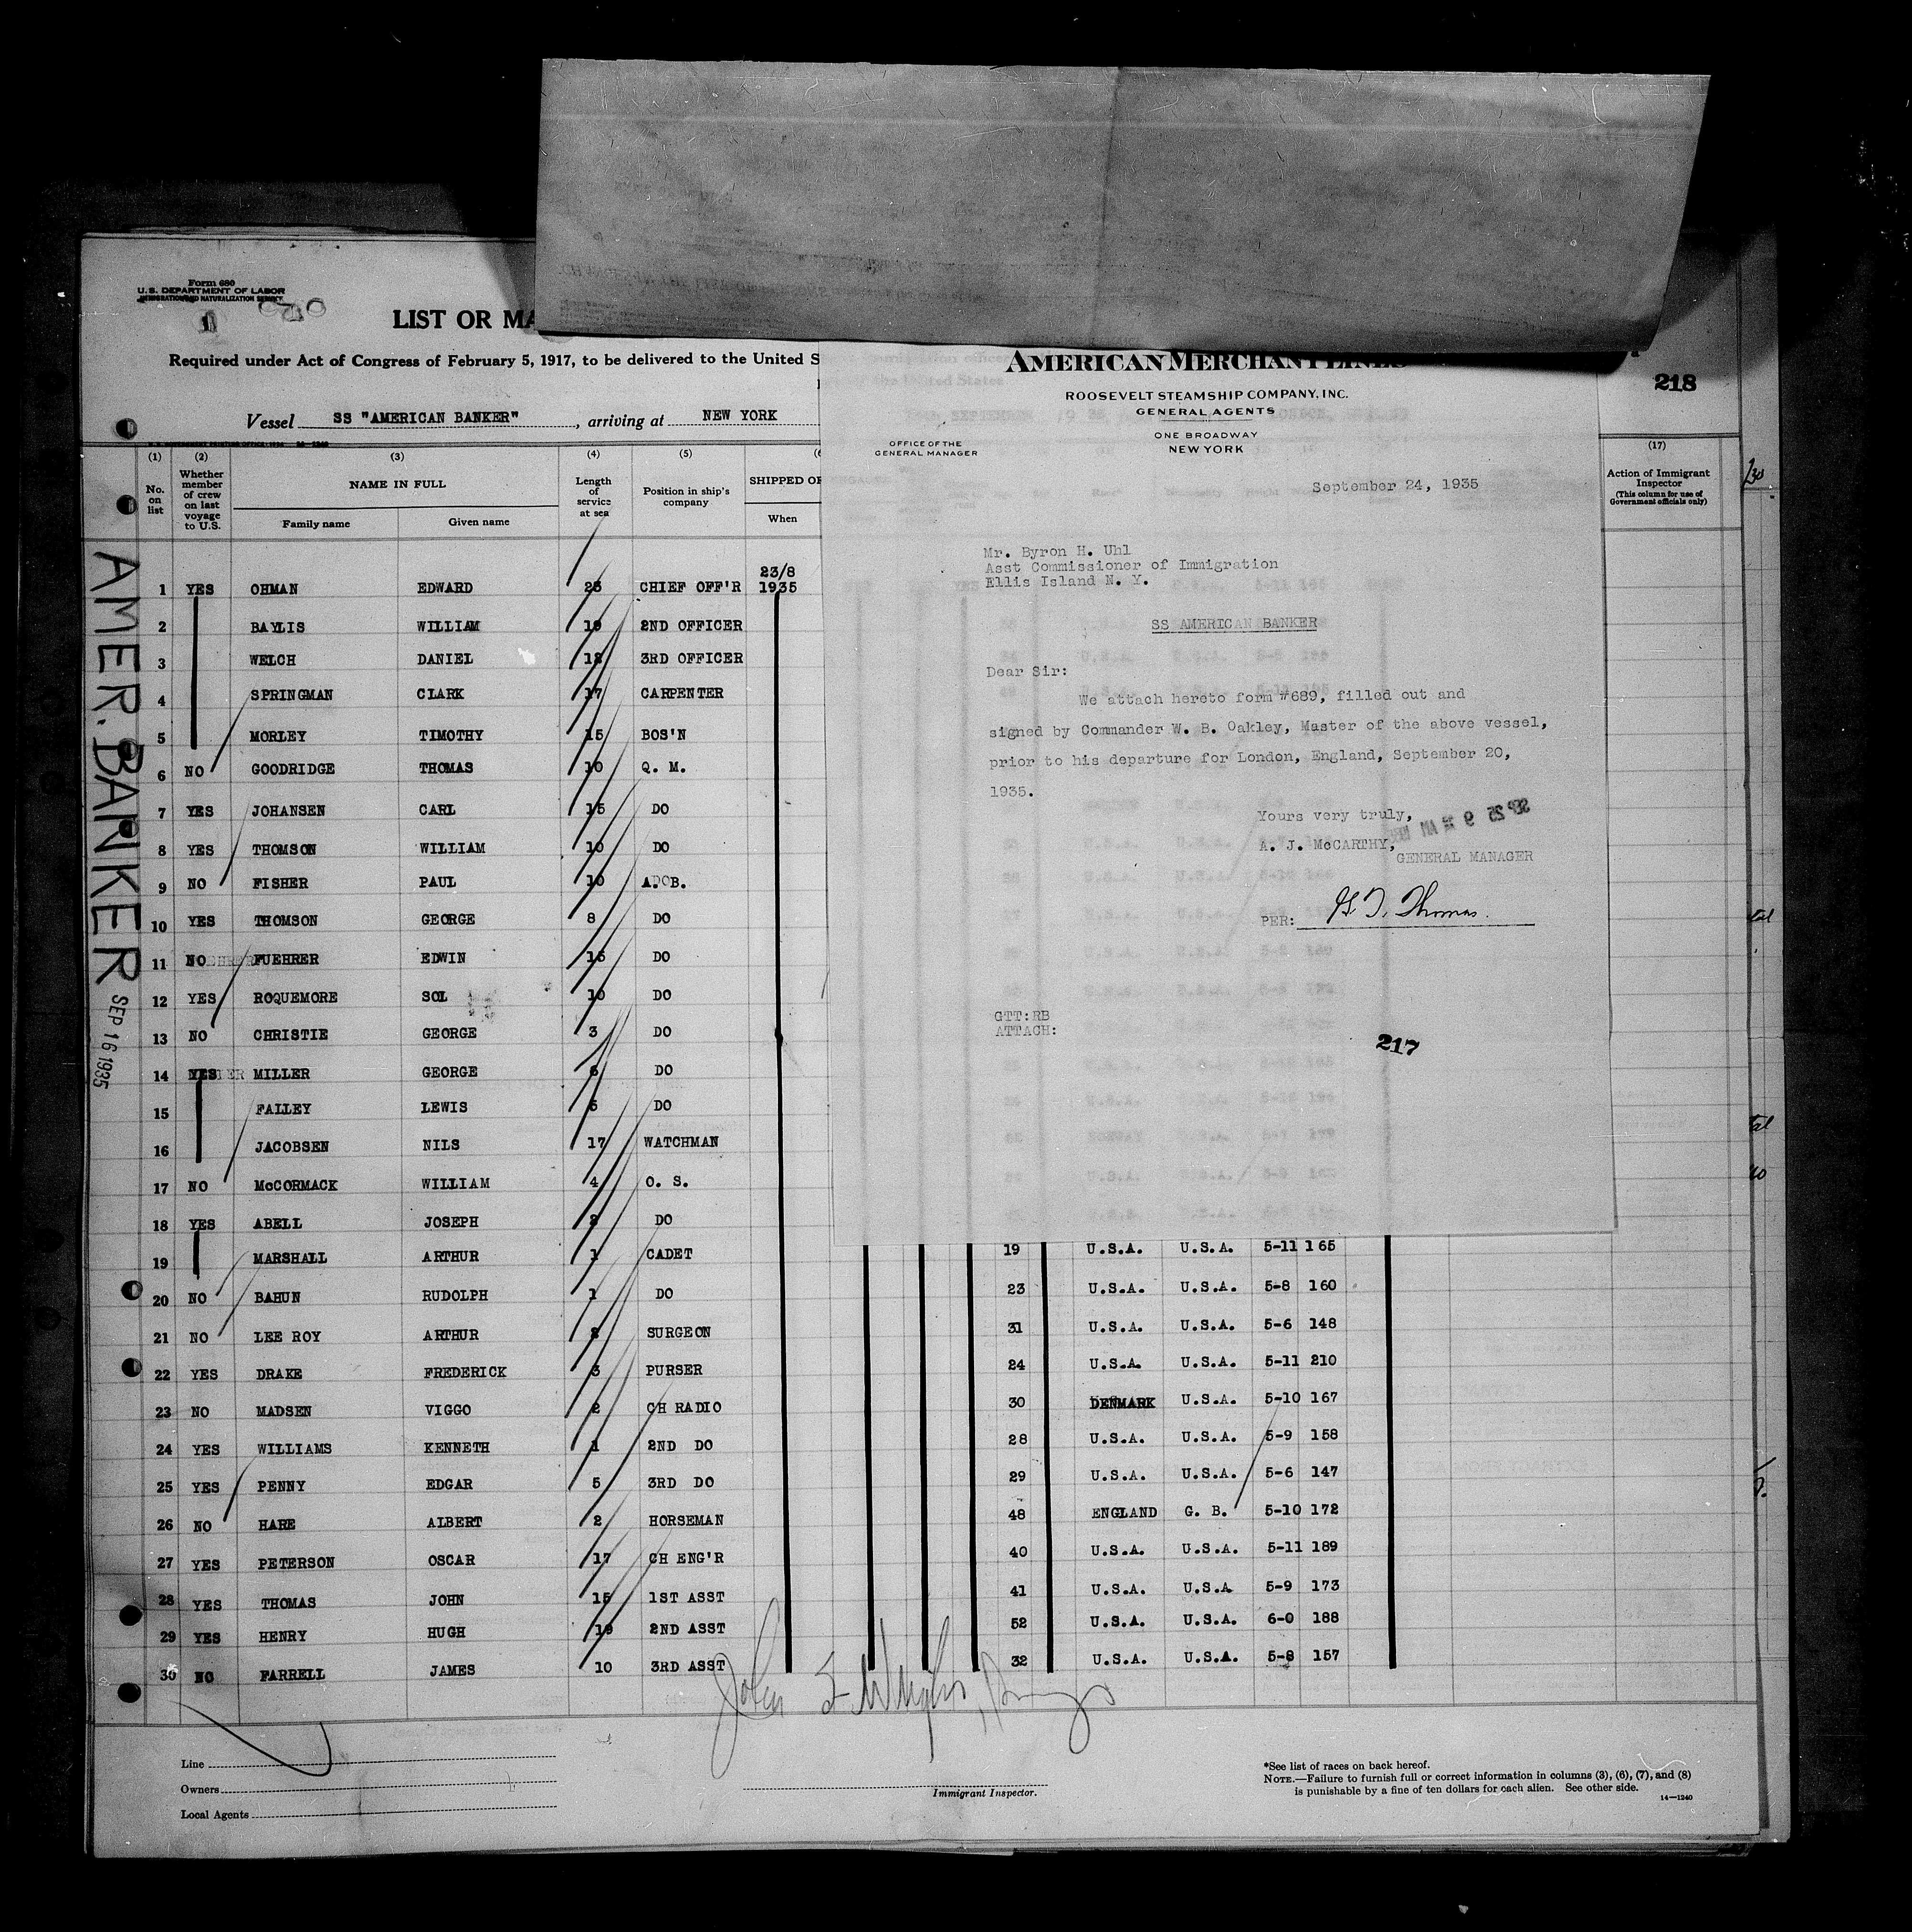 Form 680
U.S. DEPARTMENT OF LABOR
IMMIGRATION AND NATURALIZATION SERVICE
1
LIST OR MA
Required under Act of Congress of February 5, 1917, to be delivered to the United S
Vessel SS "AMERICAN BANKER", arriving at NEW YORK
218
(1) (2) (3) (4) (5) (6 (17)
No. on list
Whether member of crew on last voyage to U.S.
NAME IN FULL
Family name Given name
Length of service at sea
Position in ship's company
SHIPPED OR
When
Action of Immigrant Inspector
(This column for use of Government officials only)
AMER. BANKER SEP 16 1935
23/8
1 YES OHMAN EDWARD 25 CHIEF OFF'R 1935
2 BAYLIS WILLIAM 19 2ND OFFICER
3 WELCH DANIEL 18 3RD OFFICER
4 SPRINGMAN CLARK 17 CARPENTER
5 MORLEY TIMOTHY 15 BOS'N
6 NO GOODRIDGE THOMAS 10 Q. M.
7 YES JOHANSEN CARL 15 DO
8 YES THOMSON WILLIAM 10 DO
9 NO FISHER PAUL 10 A. B.
10 YES THOMSON GEORGE 8 DO
11 NO FUEHRER EDWIN 15 DO
12 YES ROQUEMORE SOL 10 DO
13 NO CHRISTIE GEORGE 3 DO
14 YES MILLER GEORGE 6 DO
15 FALLEY LEWIS 5 DO
16 JACOBSEN NILS 17 WATCHMAN
17 NO McCORMACK WILLIAM 4 O. S.
18 YES ABELL JOSEPH 2 DO
19 MARSHALL ARTHUR 1 CADET 19 U.S.A. U.S.A. 5-11 165
20 NO BAHUN RUDOLPH 1 DO 23 U.S.A. U.S.A. 5-8 160
21 NO LEE ROY ARTHUR 2 SURGEON 31 U.S.A. U.S.A. 5-6 148
22 YES DRAKE FREDERICK 3 PURSER 24 U.S.A. U.S.A. 5-11 210
23 NO MADSEN VIGGO 2 CH RADIO 30 DENMARK U.S.A. 5-10 167
24 YES WILLIAMS KENNETH 1 2ND DO 28 U.S.A. U.S.A. 5-9 158
25 YES PENNY EDGAR 5 3RD DO 29 U.S.A. U.S.A. 5-6 147
26 NO HARE ALBERT 2 HORSEMAN 48 ENGLAND G. B. 5-10 172
27 YES PETERSON OSCAR 17 CH ENG'R 40 U.S.A. U.S.A. 5-11 189
28 YES THOMAS JOHN 15 1ST ASST 41 U.S.A. U.S.A 5-9 173
29 YES HENRY HUGH 19 2ND ASST 52 U.S.A. U.S.A. 6-0 188
30 NO FARRELL JAMES 10 3RD ASST 32 U.S.A. U.S.A. 5-8 157
Line
Owners
Local Agents
Immigrant Inspector.
*See list of races on back hereof.
NOTE.—Failure to furnish full or correct information in columns (3), (6), (7), and (8)
is punishable by a fine of ten dollars for each alien. See other side.
14—1240
AMERICAN MERCHANT LINES
ROOSEVELT STEAMSHIP COMPANY, INC.
GENERAL AGENTS
ONE BROADWAY
NEW YORK
OFFICE OF THE
GENERAL MANAGER
September 24, 1935
Mr. Byron H. Uhl
Asst Commissioner of Immigration
Ellis Island N. Y.
SS AMERICAN BANKER
Dear Sir:
We attach hereto form #689, filled out and
signed by Commander W. B. Oakley, Master of the above vessel,
prior to his departure for London, England, September 20,
1935.
Yours very truly,
A. J. McCARTHY,
GENERAL MANAGER
PER: G. T. Thomas.
GTT:RB
ATTACH:
217